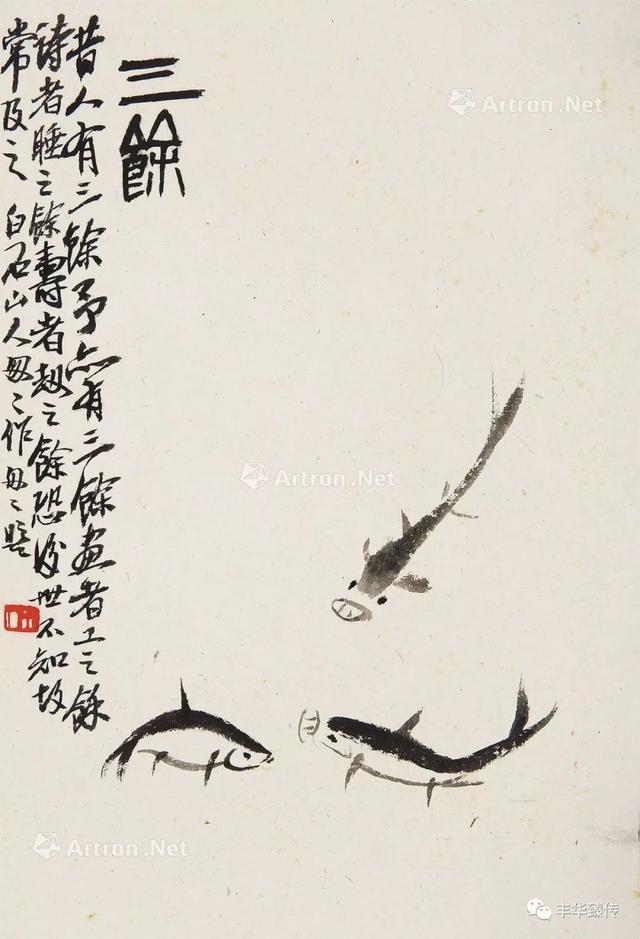 三餘
昔人有三餘予亦有三餘畫者工之餘
詩者睡之餘壽者劫之餘恐後世不知故
常及之 白石山人每〻作每〻題
Artron.Net
Artron.Net
Artron.Net
丰华臻传